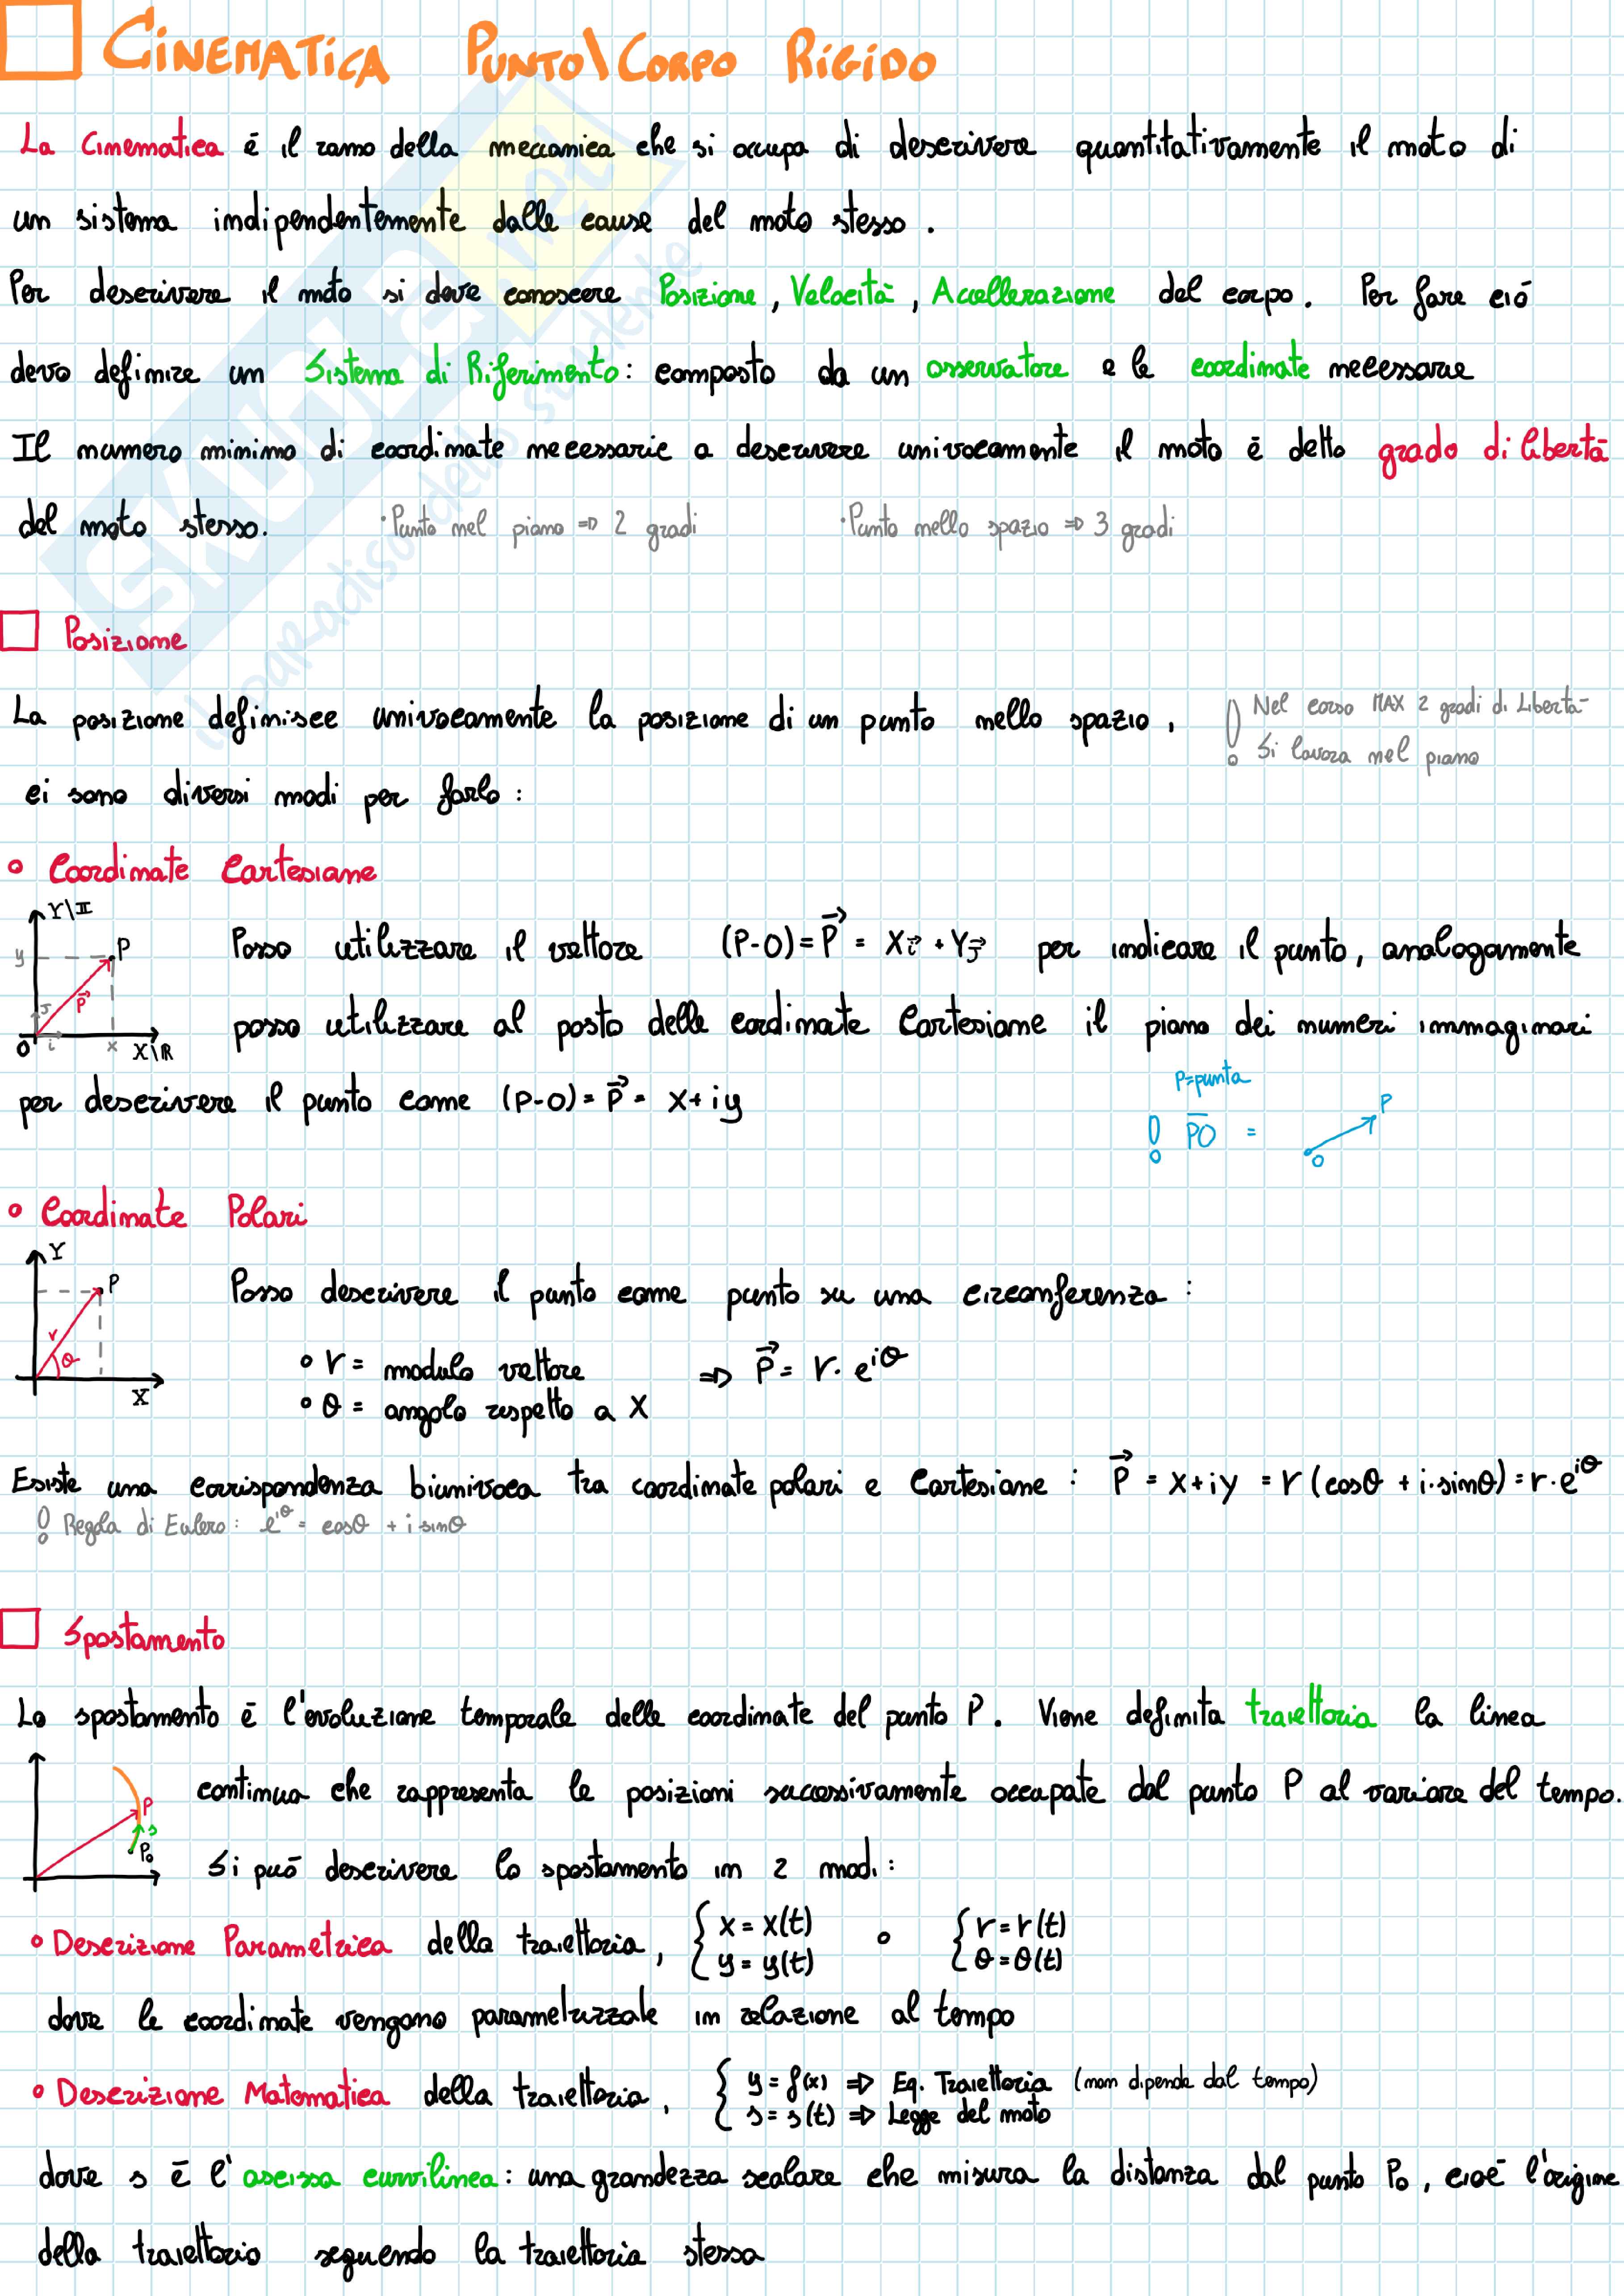 CINEMATICA PUNTO\CORPO RIGIDO
La Cinematica é il ramo della meccanica che si occupa di descrivere quantitativamente il moto di
un sistema indipendentemente dalle cause del moto stesso.
Per descrivere il moto si deve conoscere Posizione, Velocità, Accellerazione del corpo. Per fare ció
devo definire un Sistema di Riferimento: composto da un osservatore e le coordinate necessarie
Il numero minimo di coordinate necessarie a descrivere univocamente il moto é detto grado di libertà
del moto stesso. ·Punto nel piano => 2 gradi ·Punto nello spazio => 3 gradi
Posizione
La posizione definisce univocamente la posizione di un punto nello spazio, ! Nel corso MAX 2 gradi di Libertà-
Si lavora nel piano
ci sono diversi modi per farlo:
Coordinate Cartesiane
Y\II
y P
P⃗
J
O i x X\R
Posso utilizzare il vettore (P-O)=P⃗ = Xi⃗ + YJ⃗ per indicare il punto, analogamente
posso utilizzare al posto delle cordinate Cartesiane il piano dei numeri immaginari
per descrivere il punto come (P-O)=P⃗= x+iy
P=punta
! P̅O̅ = O P
Coordinate Polari
Y
P
r
θ
X
Posso descrivere il punto come punto su una circonferenza:
° r = modulo vettore => P⃗ = r· e^iθ
° θ = angolo rispetto a X
Esiste una corrispondenza biunivoca tra coordinate polari e Cartesiane: P⃗ = x+iy = r(cosθ + i·sinθ)=r·e^iθ
! Regola di Eulero: e^iθ = cosθ + i sinθ
Spostamento
Lo spostamento é l'evoluzione temporale delle coordinate del punto P. Viene definita traiettoria la linea
P
s
P₀
continua che rappresenta le posizioni successivamente occupate dal punto P al variare del tempo.
Si può descrivere lo spostamento in 2 modi:
° Descrizione Parametrica della traiettoria, { x = x(t) o { r = r(t)
y = y(t) θ = θ(t)
dove le coordinate vengono parametrizzate in relazione al tempo
° Descrizione Matematica della traiettoria, { y = f(x) => Eq. Traiettoria (non dipende dal tempo)
s = s(t) => Legge del moto
dove s é l'ascissa curvilinea: una grandezza scalare che misura la distanza dal punto P₀, cioé l'origine
della traiettorio seguendo la traiettoria stessa
SKUOLA.net
il paradiso dello studente